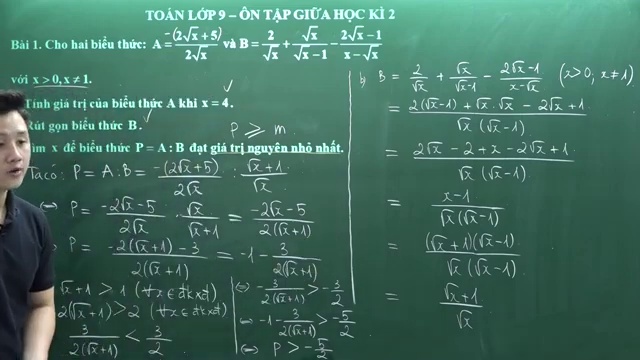 TOÁN LỚP 9 – ÔN TẬP GIỮA HỌC KÌ 2
Bài 1. Cho hai biểu thức: A = -(2√x + 5) / 2√x và B = 2/√x + √x/(√x − 1) − (2√x − 1)/(x − √x)
với x > 0, x ≠ 1.
Tính giá trị của biểu thức A khi x = 4.
Rút gọn biểu thức B.
P ⩾ m
x để biểu thức P = A : B đạt giá trị nguyên nhỏ nhất.
Ta có: P = A : B = -(2√x + 5)/2√x : (√x + 1)/√x
⇔ P = (-2√x − 5)/2√x · √x/(√x + 1) = (-2√x − 5)/2(√x + 1)
P = (-2(√x + 1) − 3)/2(√x + 1) = -1 − 3/2(√x + 1)
√x + 1 > 1 (∀x ∈ đkxđ)
2(√x + 1) > 2 (∀x ∈ đkxđ)
3/2(√x + 1) < 3/2
⇔ -3/2(√x + 1) > -3/2
⇔ -1 − 3/2(√x + 1) > -5/2
⇔ P > -5/2
b) B = 2/√x + √x/(√x − 1) − (2√x − 1)/(x − √x) (x > 0; x ≠ 1)
= (2(√x − 1) + √x · √x − 2√x + 1)/√x (√x − 1)
= (2√x − 2 + x − 2√x + 1)/√x (√x − 1)
= (x − 1)/√x (√x − 1)
= (√x + 1)(√x − 1)/√x (√x − 1)
= (√x + 1)/√x